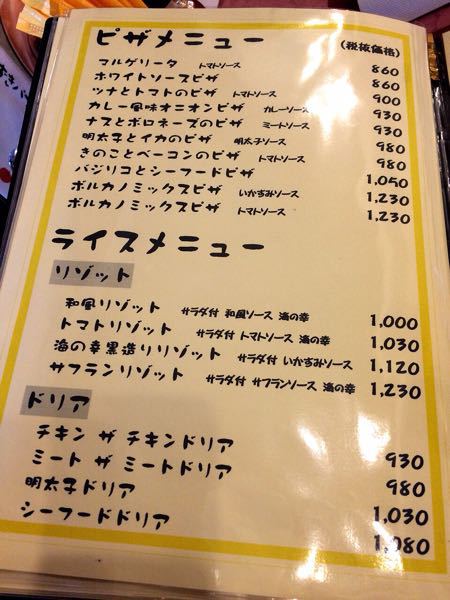 ピザメニュー (税抜価格)
マルゲリータ トマトソース 860
ホワイトソースピザ 860
ツナとトマトのピザ トマトソース 900
カレー風味オニオンピザ カレーソース 930
ナスとボロネーズのピザ ミートソース 930
明太子とイカのピザ 明太子ソース 980
きのことベーコンのピザ トマトソース 980
バジリコとシーフードピザ 1,050
ボルカノミックスピザ いかすみソース 1,230
ボルカノミックスピザ トマトソース 1,230
ライスメニュー
リゾット
和風リゾット サラダ付 和風ソース 海の幸 1,000
トマトリゾット サラダ付 トマトソース 海の幸 1,030
海の幸黒造りリゾット サラダ付 いかすみソース 1,120
サフランリゾット サラダ付 サフランソース 海の幸 1,230
ドリア
チキン ザ チキンドリア 930
ミート ザ ミートドリア 980
明太子ドリア 1,030
シーフードドリア 1,080